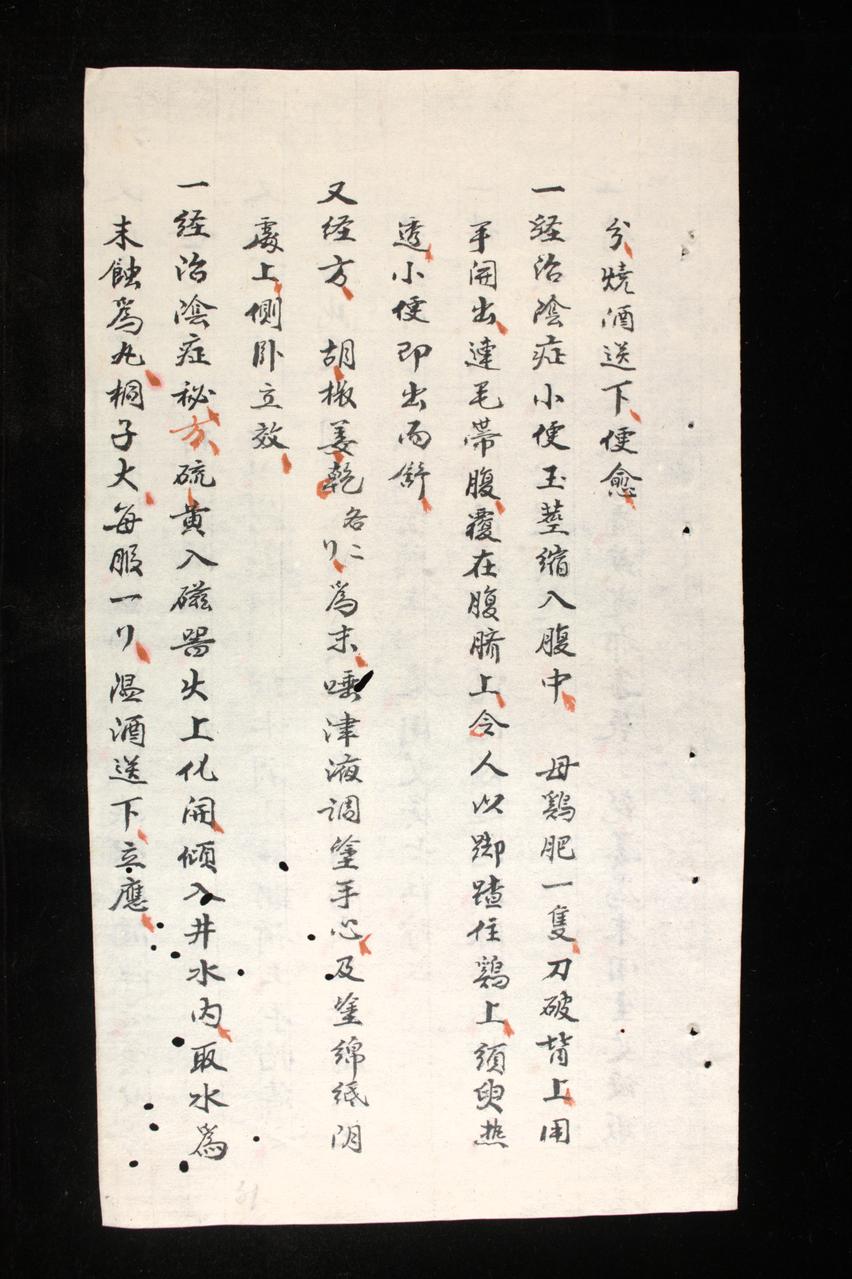 分燒酒送下便愈
一経治陰症小便玉莖缩入腹中 母鷄肥一隻刀破背上用
手開出連毛帶腹覆在腹臍上令人以脚踏住鷄上須臾热
透小便即出而舒
又経方 胡椒姜乾各二刂為末唾津液調塗手心及塗綿纸阴
處上側卧立效
一経治陰症秘方硫黄入磁器火上化開傾入井水内取水為
末蝕為丸桐子大每服一刂温酒送下立應